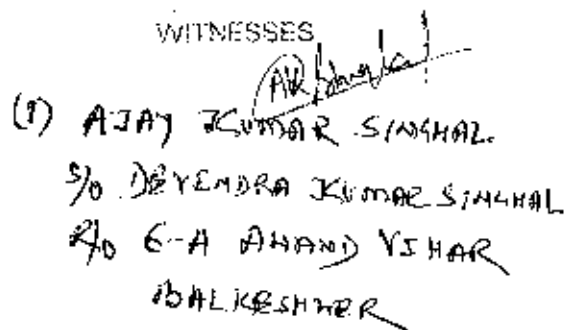 WITNESSES
(1) AJAY KUMAR SINGHAL
S/O DEVENDRA KUMAR SINGHAL
R/O 6-A ANAND VIHAR
BALKESHWER